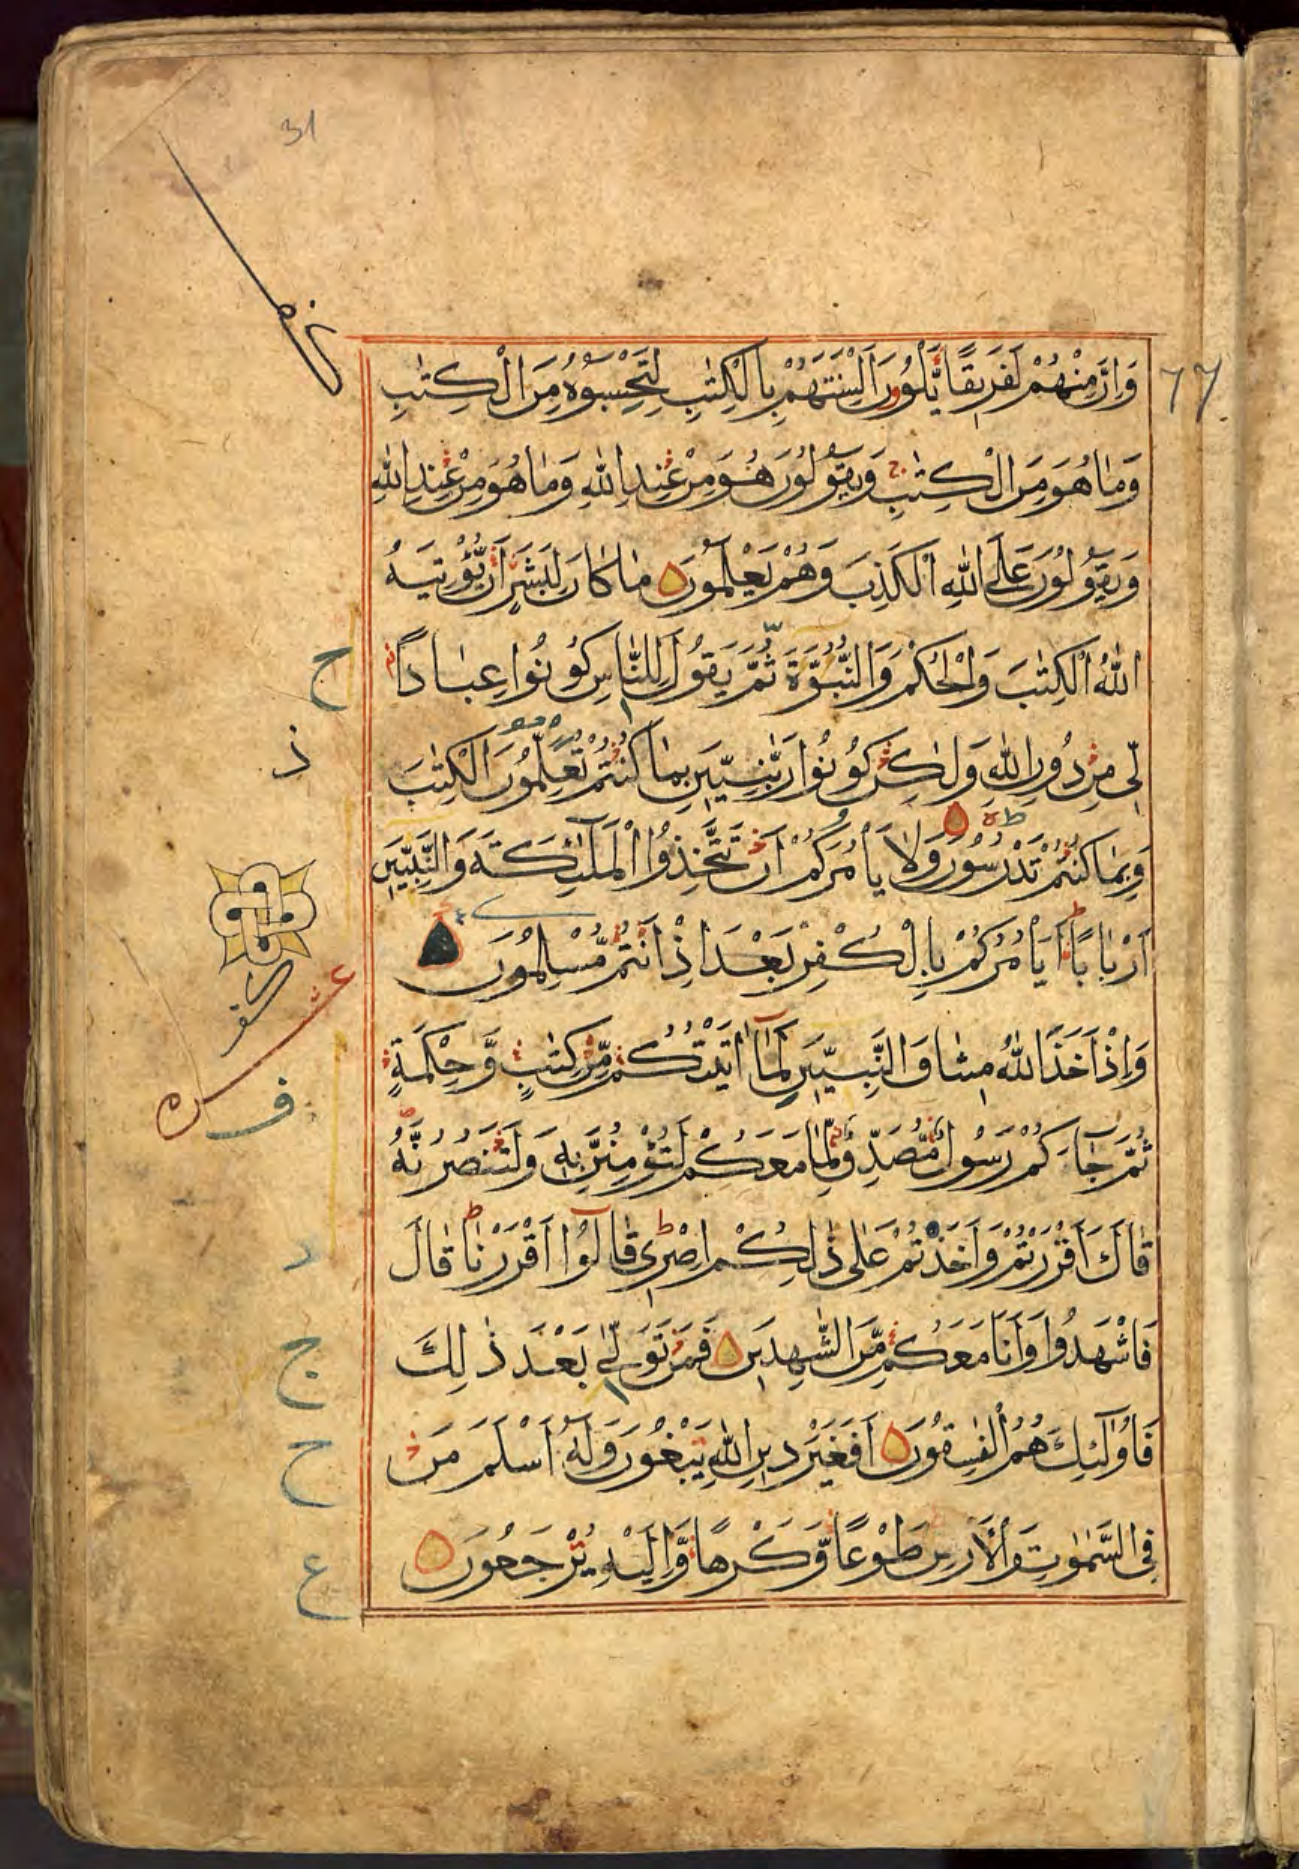 31
وَاِنَّ مِنْهُمْ لَفَرِيْقًا يَّلْوٗنَ اَلْسِنَتَهُمْ بِالْكِتٰبِ لِتَحْسَبُوْهُ مِنَ الْكِتٰبِ
وَمَا هُوَ مِنَ الْكِتٰبِ وَيَقُوْلُوْنَ هُوَ مِنْ عِنْدِ اللّٰهِ وَمَا هُوَ مِنْ عِنْدِ اللّٰهِ
وَيَقُوْلُوْنَ عَلَى اللّٰهِ الْكَذِبَ وَهُمْ يَعْلَمُوْنَ مَا كَانَ لِبَشَرٍ اَنْ يُّؤْتِيَهُ
اللّٰهُ الْكِتٰبَ وَالْحُكْمَ وَالنُّبُوَّةَ ثُمَّ يَقُوْلَ لِلنَّاسِ كُوْنُوْا عِبَادًا
لِّيْ مِنْ دُوْنِ اللّٰهِ وَلٰكِنْ كُوْنُوْا رَبّٰنِيّٖنَ بِمَا كُنْتُمْ تُعَلِّمُوْنَ الْكِتٰبَ
وَبِمَا كُنْتُمْ تَدْرُسُوْنَ وَلَا يَأْمُرَكُمْ اَنْ تَتَّخِذُوا الْمَلٰٓئِكَةَ وَالنَّبِيّٖنَ
اَرْبَابًا اَيَأْمُرُكُمْ بِالْكُفْرِ بَعْدَ اِذْ اَنْتُمْ مُّسْلِمُوْنَ
وَاِذْ اَخَذَ اللّٰهُ مِيثَاقَ النَّبِيّٖنَ لَمَآ اٰتَيْتُكُمْ مِّنْ كِتٰبٍ وَّحِكْمَةٍ
ثُمَّ جَآءَكُمْ رَسُوْلٌ مُّصَدِّقٌ لِّمَا مَعَكُمْ لَتُؤْمِنُنَّ بِهٖ وَلَتَنْصُرُنَّهُ
قَالَ ءَاَقْرَرْتُمْ وَاَخَذْتُمْ عَلٰى ذٰلِكُمْ اِصْرِيْ قَالُوْٓا اَقْرَرْنَا قَالَ
فَاشْهَدُوْا وَاَنَا مَعَكُمْ مِّنَ الشّٰهِدِيْنَ فَمَنْ تَوَلّٰى بَعْدَ ذٰلِكَ
فَاُولٰٓئِكَ هُمُ الْفٰسِقُوْنَ اَفَغَيْرَ دِيْنِ اللّٰهِ يَبْغُوْنَ وَلَهٗٓ اَسْلَمَ مَنْ
فِي السَّمٰوٰتِ وَالْاَرْضِ طَوْعًا وَّكَرْهًا وَّاِلَيْهِ يُرْجَعُوْنَ
ح
ذ
ف
د
ج
ح
ع